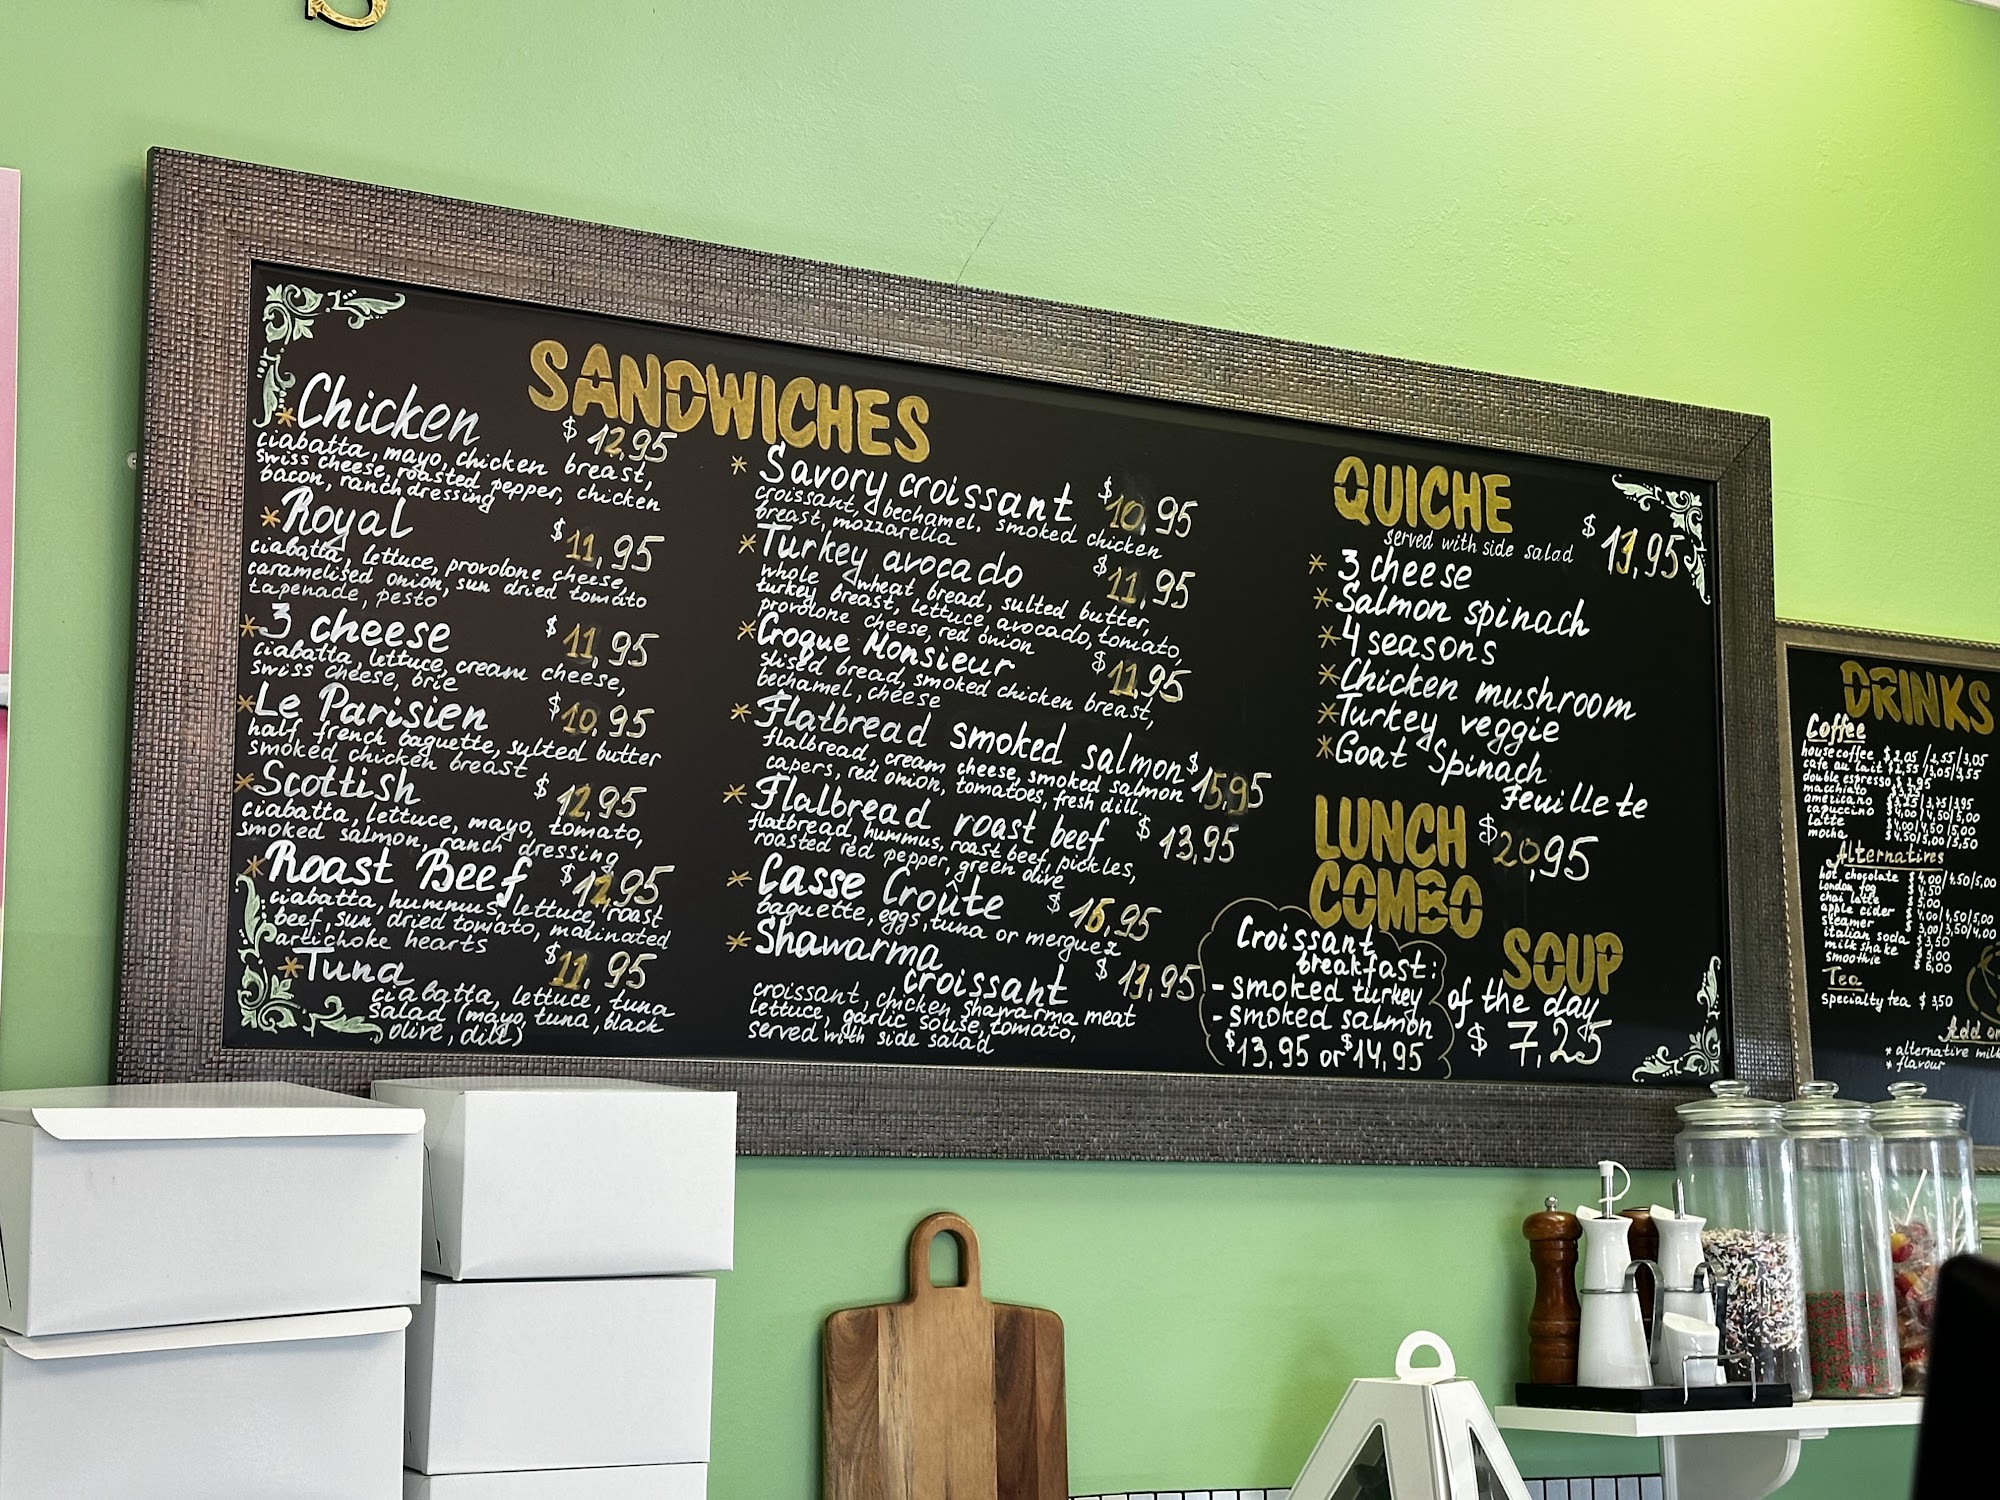 S
SANDWICHES
*Chicken $12.95
ciabatta, mayo, chicken breast,
swiss cheese, roasted pepper, chicken
bacon, ranch dressing
*Royal $11,95
ciabatta, lettuce, provolone cheese,
caramelised onion, sun dried tomato
tapenade, pesto
*3 cheese $11,95
ciabatta, lettuce, cream cheese,
swiss cheese, brie
*Le Parisien $10,95
half french baguette, sulted butter
smoked chicken breast
*Scottish $12,95
ciabatta, lettuce, mayo, tomato,
smoked salmon, ranch dressing
*Roast Beef $12,95
ciabatta, hummus, lettuce, roast
beef, sun dried tomato, marinated
artichoke hearts
*Tuna $11,95
ciabatta, lettuce, tuna
salad (mayo, tuna, black
olive, dill)
*Savory croissant $10,95
croissant, bechamel, smoked chicken
breast, mozzarella
*Turkey avocado $11,95
whole wheat bread, sulted butter,
turkey breast, lettuce, avocado, tomato,
provolone cheese, red onion
*Croque Monsieur $11,95
slised bread, smoked chicken breast,
bechamel, cheese
*Flatbread smoked salmon $15,95
flalbread, cream cheese, smoked salmon
capers, red onion, tomatoes, fresh dill,
*Flalbread roast beef $13,95
flatbread, hummus, roast beef, pickles,
roasted red pepper, green olive
*Casse Croûte $15,95
baguette, eggs, tuna or merguez
*Shawarma
croissant $13,95
croissant, chicken shawarma meat
lettuce, garlic souse, tomato,
served with side salad
QUICHE
served with side salad $13,95
*3 cheese
*Salmon spinach
*4 seasons
*Chicken mushroom
*Turkey veggie
*Goat Spinach
Feuillete
LUNCH $20,95
COMBO
Croissant
breakfast:
- smoked turkey
- smoked salmon
$13,95 or $14,95
SOUP
of the day
$7,25
DRINKS
Coffee
house coffee $2,05 / 2,55 / 3,05
cafe au lait $2,55 / 3,05 / 3,55
double espresso $2,95
macchiato
americano $3,25 / 3,75 / 3,95
capuccino $4,00 / 4,50 / 5,00
latte $4,00 / 4,50 / 5,00
mocha $4,50 / 5,00 / 5,50
Alternatives
hot chocolate $4,00 / 4,50 / 5,00
london fog $4,50
chai latte $5,00
apple cider $4,00 / 4,50 / 5,00
steamer $3,00 / 3,50 / 4,00
italian soda $3,50
milk shake $5,00
smoothie $6,00
Tea
specialty tea $3,50
Add on
* alternative milk
* flavour